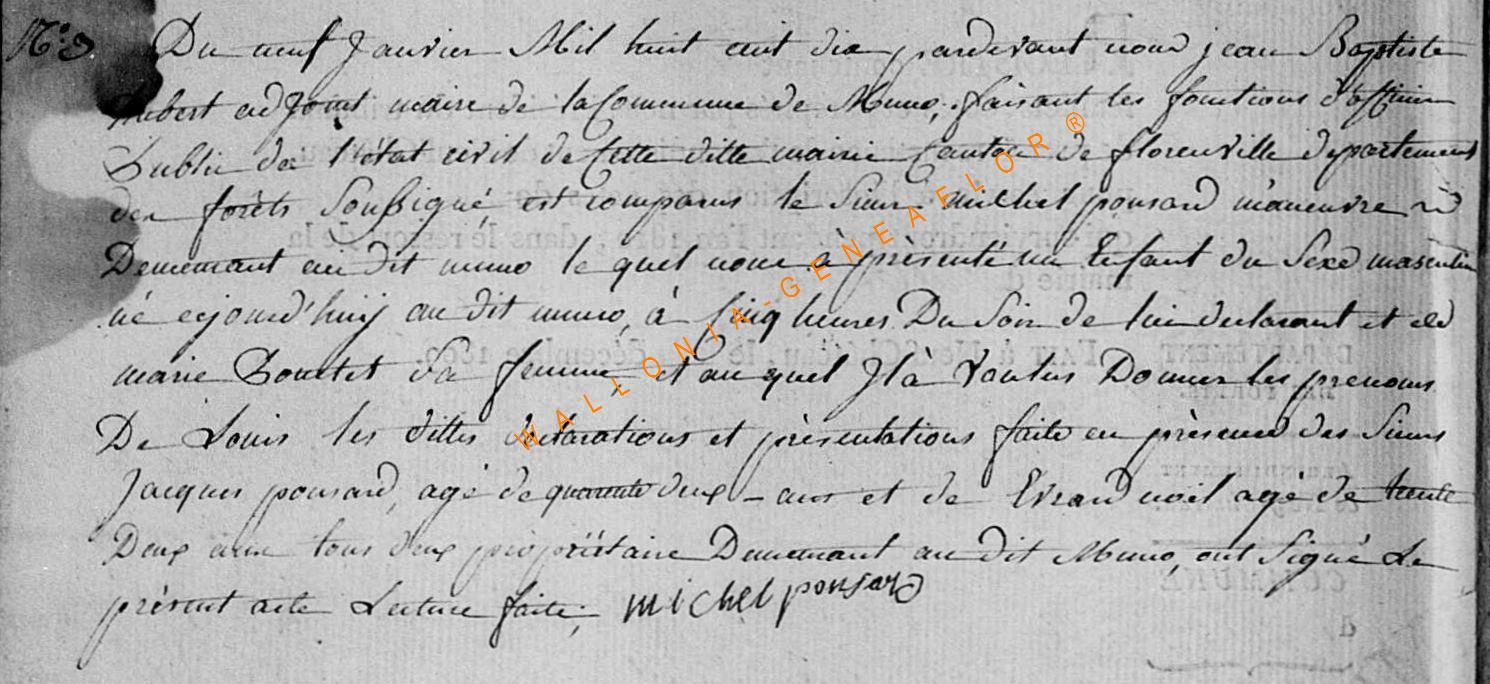 N.° 3 Du neuf Janvier Mil huit cent dix pardevant nous jean Baptiste
hubert adjoint maire de la Commune de Muno, faisant les fonctions d'officier
Public de l'état civil de Cette ditte mairie Canton de florenville departement
des forêts Soussigné, est comparus le Sieur michel ponsard manœuvre
Demeurant au dit muno le quel nous à présenté un Enfant du Sexe masculin
né cejourd'huij au dit muno, à Cinq heures Du Soir de lui declarant et de
marie sa femme, et au quel Il à Voulus Donner les prenoms
De Louis les dittes declarations et présentations faite en présence des Sieurs
Jacques ponsard, agé de quarante deux - ans et de Evrard noël agé de trente
Deux ans tous deux propriétaire Demeurant au dit Muno, ont Signé Le
présent acte Lecture faite, michel ponsard
WALLONIA-GENEAFLOR®